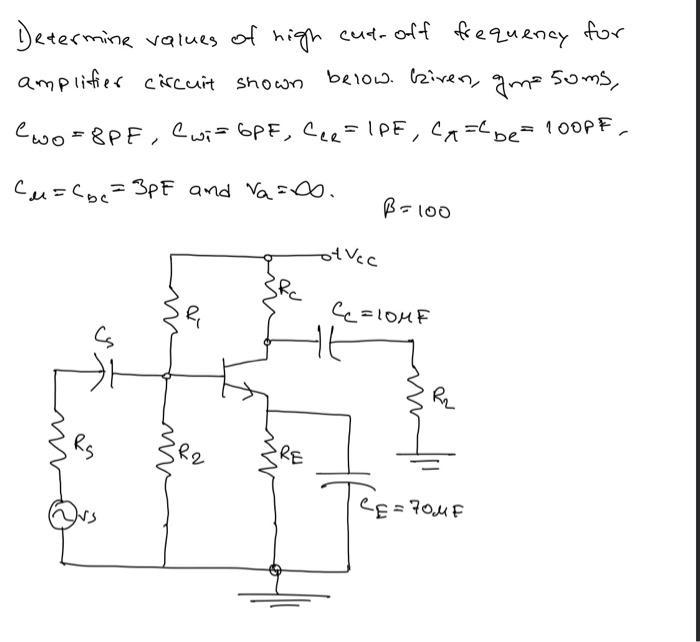 Determine values of high cut-off frequency for
amplifier circuit shown below. Given, gm = 50ms,
Cwo = 8PF, Cwi = 6PF, Cce = 1PF, Cπ = Cbe = 100PF,
Cμ = Cbc = 3pF and Va = ∞.
β = 100
+Vcc
Rc
R1
Cc = 10MF
Cs
RL
Rs
R2
RE
Vs
CE = 70MF